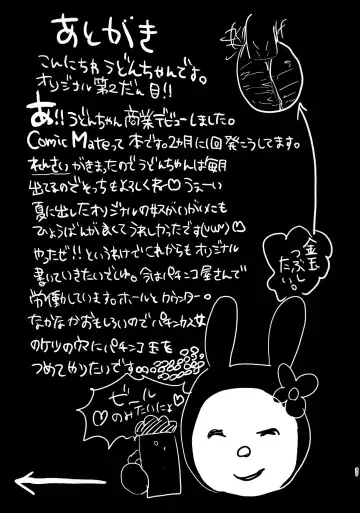 あとがき
こんにちわうどんちゃんです。
オリジナル第2だん目!!
あ!!うどんちゃん商業デビューしました。
Comic Mateって本です。2カ月に1回発こうしてます。
れんさいがきまったのでうどんちゃんは毎月
出てるのでそっちもよろしくね♡うぇーい
夏に出したオリジナルの
ひょうばんが良くてうれしかったです(uwu)♡
やったぜ!!というわけでこれからもオリジナル
書いていきたいでしゅ。今はパチンコ屋さんで
労働しています。ホールとカウンター。
なかなかおもしろいのでパチンカス女
のケツの穴にパチンコ玉を
つめてやりたいです∞
金玉
つぶし
たい。
ビール
♡のみたいにょ♡